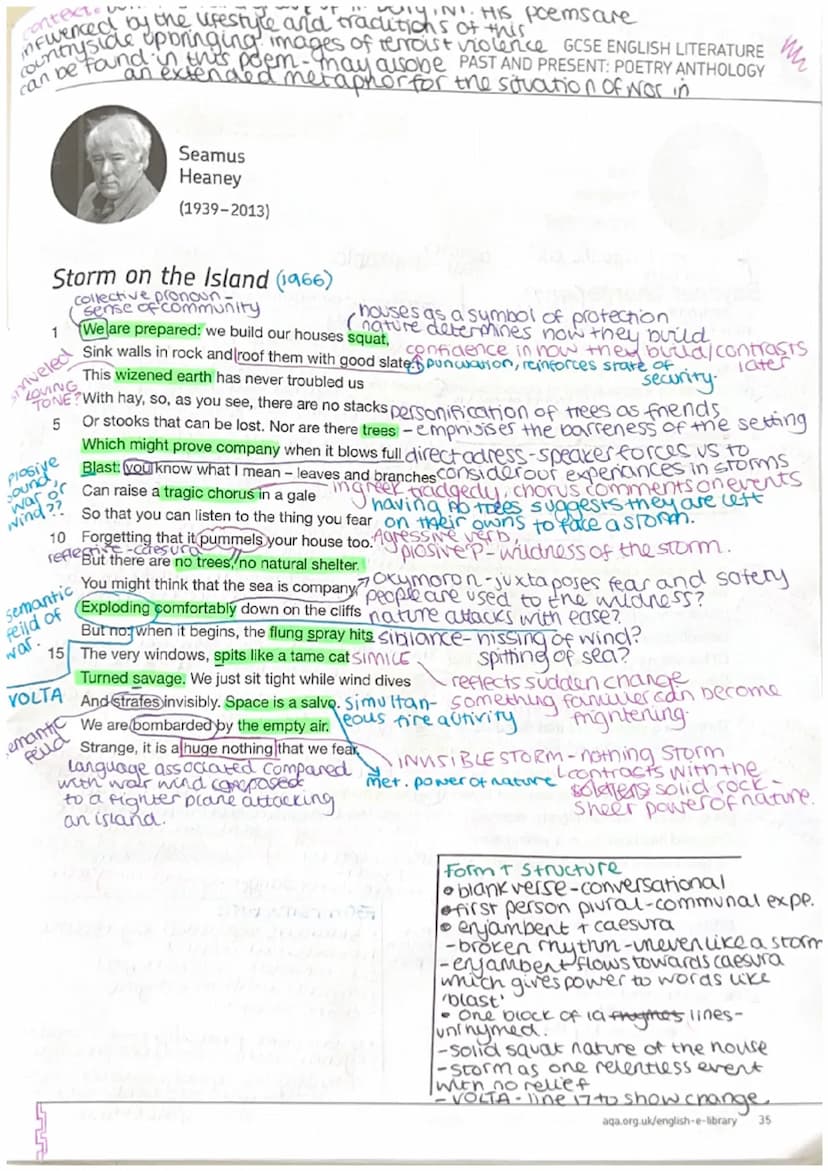 context:
POEMS ARE
influenced by the lifestyle and traditions of this
countryside upbringing. images of terroist violence
can be found in this poem - may also be
an extended metaphor for the situation of war in
GCSE ENGLISH LITERATURE
PAST AND PRESENT: POETRY ANTHOLOGY
Seamus
Heaney
(1939–2013)
Storm on the Island (1966)
collective pronoun -
sense of community
houses as a symbol of protection
nature determines how they build
1 We are prepared: we build our houses squat,
confidence in how they build/contrasts
later
Sink walls in rock and roof them with good slate.
punuation, reinforces state of
security.
shriveled
This wizened earth has never troubled us
LOVING
TONE?
With hay, so, as you see, there are no stacks
personification of trees as friends
5 Or stooks that can be lost. Nor are there trees
- emphisises the barreness of the setting
Which might prove company when it blows full
direct adress - speaker forces us to
consider our experiances in storms
plosive
sound,
war or
wind??
Blast: you know what I mean – leaves and branches
Can raise a tragic chorus in a gale
in greek tradgedy, chorus comments on events
So that you can listen to the thing you fear
having no trees suggests they are left
on their owns to face a storm.
10 Forgetting that it pummels your house too.
Agressive verb,
plosive P - wildness of the storm.
reflective - caesura
But there are no trees, no natural shelter.
You might think that the sea is company,
Oxymoron - juxtaposes fear and safety
people are used to the wildness?
nature attacks with ease?
semantic
feild of
war.
Exploding comfortably down on the cliffs
But no: when it begins, the flung spray hits
sibilance - hissing of wind?
spitting of sea?
15 The very windows, spits like a tame cat
SIMILE
Turned savage. We just sit tight while wind dives
reflects sudden change
something familier can become
frightening.
VOLTA
And strafes invisibly. Space is a salvo.
simultan-
eous fire activity
We are bombarded by the empty air.
semantic
feild
Strange, it is a huge nothing that we fear.
INVISIBLE STORM - nothing storm
contrasts with the
solid rock -
sheer power of nature.
met. power of nature
language associated compared
with war wind composed
to a fighter plane attacking
an island.
Form + structure
• blank verse - conversational
• first person plural - communal expp.
• enjambent + caesura
- broken rhythm - uneven like a storm
- enjambent flows towards caesura
which gives power to words like
'blast'
• One block of 19 rhymes lines -
unrhymed.
- solid squat nature of the house
- storm as one relentless event
with no relief
- VOLTA - line 17 to show change.
aqa.org.uk/english-e-library 35